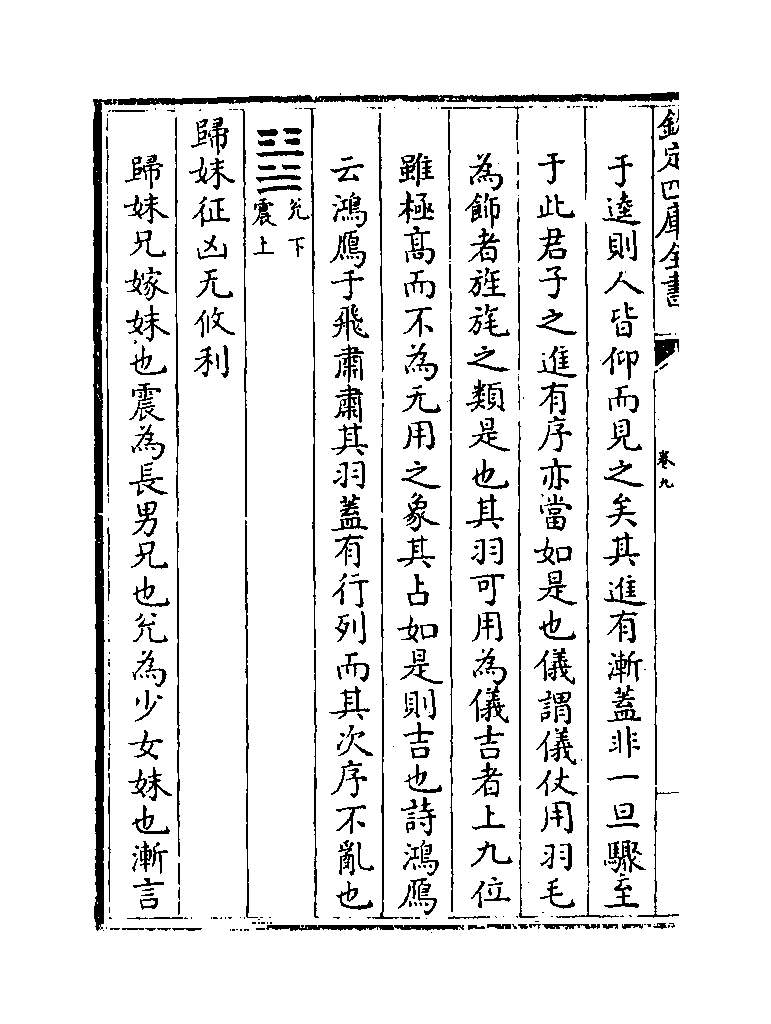 欽定四庫全書
卷九
于逵則人皆仰而見之矣其進有漸蓋非一旦驟至
于此君子之進有序亦當如是也儀謂儀仗用羽毛
為飾者旌旄之類是也其羽可用為儀吉者上九位
雖極髙而不為无用之象其占如是則吉也詩鴻鴈
云鴻鴈于飛肅肅其羽蓋有行列而其次序不亂也
兊下
震上
歸妹征凶无攸利
歸妹兄嫁妹也震為長男兄也兊為少女妹也漸言